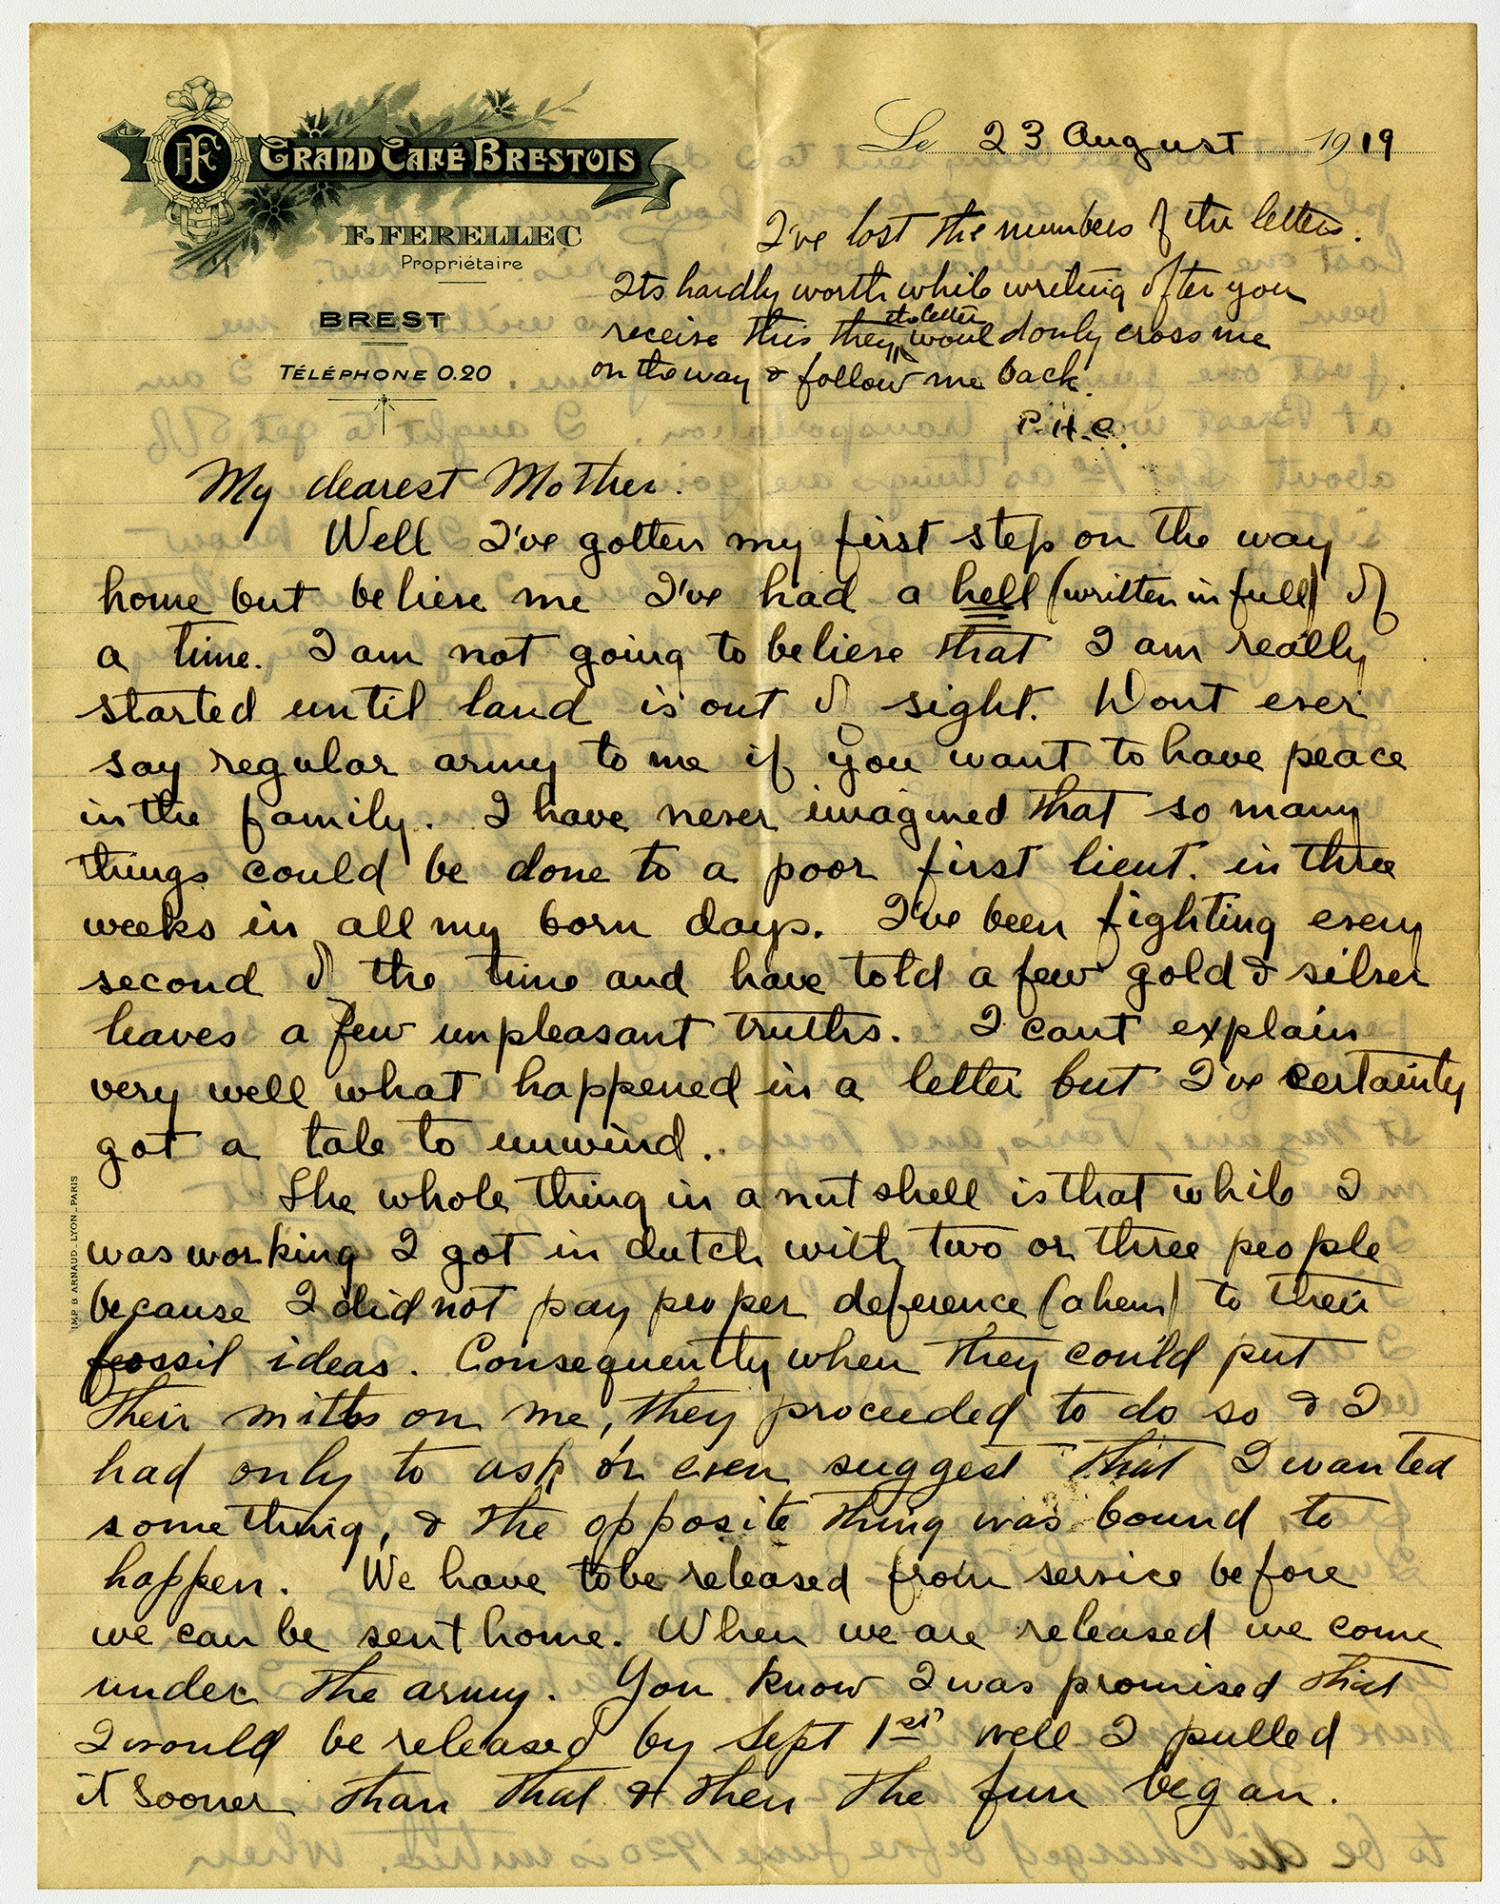 FF
GRAND CAFÉ BRESTOIS
F. FERELLEC
Propriétaire
BREST
TÉLÉPHONE 0.20
Le 23 August 1919
I've lost the numbers of the letters.
Its hardly worth while writing after you
receive this they the letter would only cross me
on the way & follow me back.
P.H.C.
My dearest Mother.
Well I've gotten my first step on the way
home but believe me I've had a hell (written in full) of
a time. I am not going to believe that I am really
started until land is out of sight. Dont ever
say regular army to me if you want to have peace
in the family. I have never imagined that so many
things could be done to a poor first lieut. in three
weeks in all my born days. I've been fighting every
second of the time and have told a few gold & silver
leaves a few unpleasant truths. I cant explain
very well what happened in a letter but I've certainly
got a tale to unwind.
The whole thing in a nut shell is that while I
was working I got in dutch with two or three people
because I did not pay proper deference (ahem) to their
fossil ideas. Consequently when they could put
their mitts on me, they proceeded to do so & I
had only to ask or even suggest that I wanted
something, & the opposite thing was bound to
happen. We have to be released from service before
we can be sent home. When we are released we come
under the army. You know I was promised that
I would be released by Sept 1st well I pulled
it sooner than that & then the fun began.
IMP. B. ARNAUD. LYON_PARIS